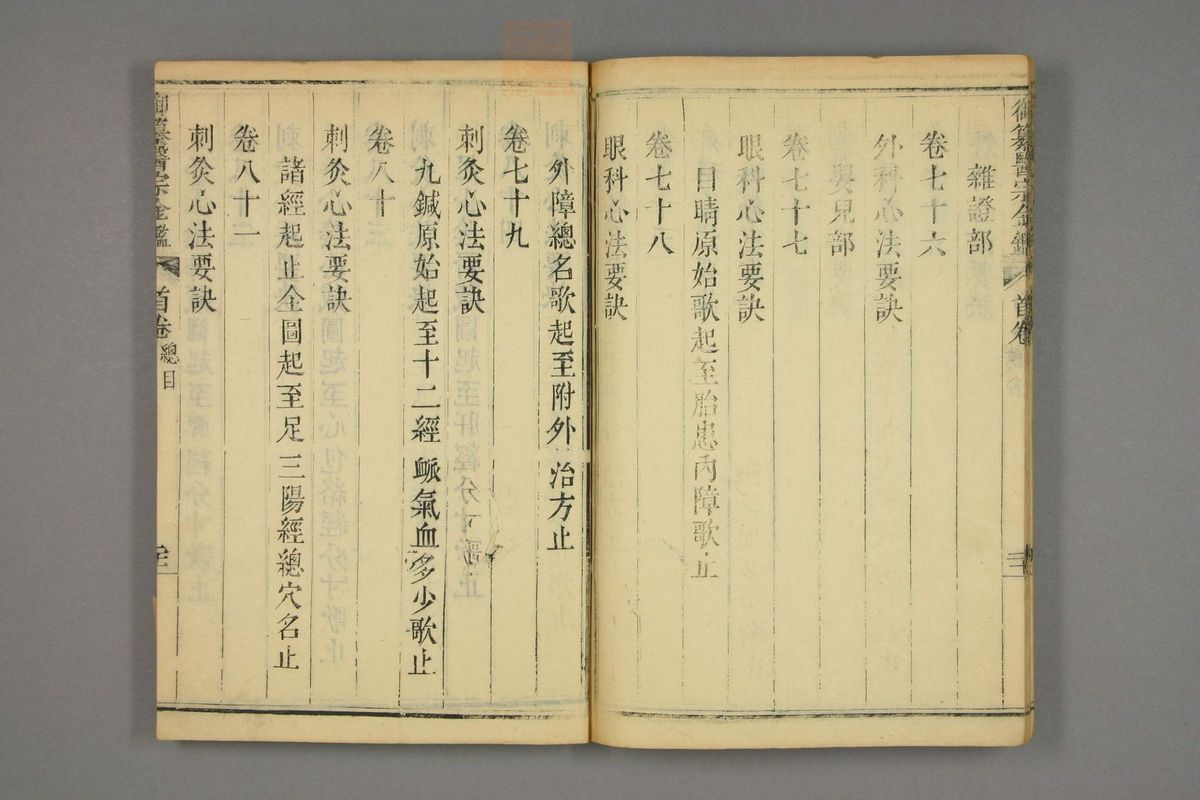 御纂醫宗金鑑 首卷
雜證部
卷七十六
外科心法要訣
嬰兒部
卷七十七
眼科心法要訣
目睛原始歌起至胎患內障歌止
卷七十八
眼科心法要訣
外障總名歌起至附外治方止
卷七十九
刺灸心法要訣
九鍼原始起至十二經䘑氣血多少歌止
卷八十
刺灸心法要訣
諸經起止全圖起至足三陽經總穴名止
卷八十一
刺灸心法要訣
御纂醫宗金鑑 首卷 總目